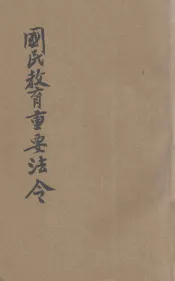 國民教育重要法令